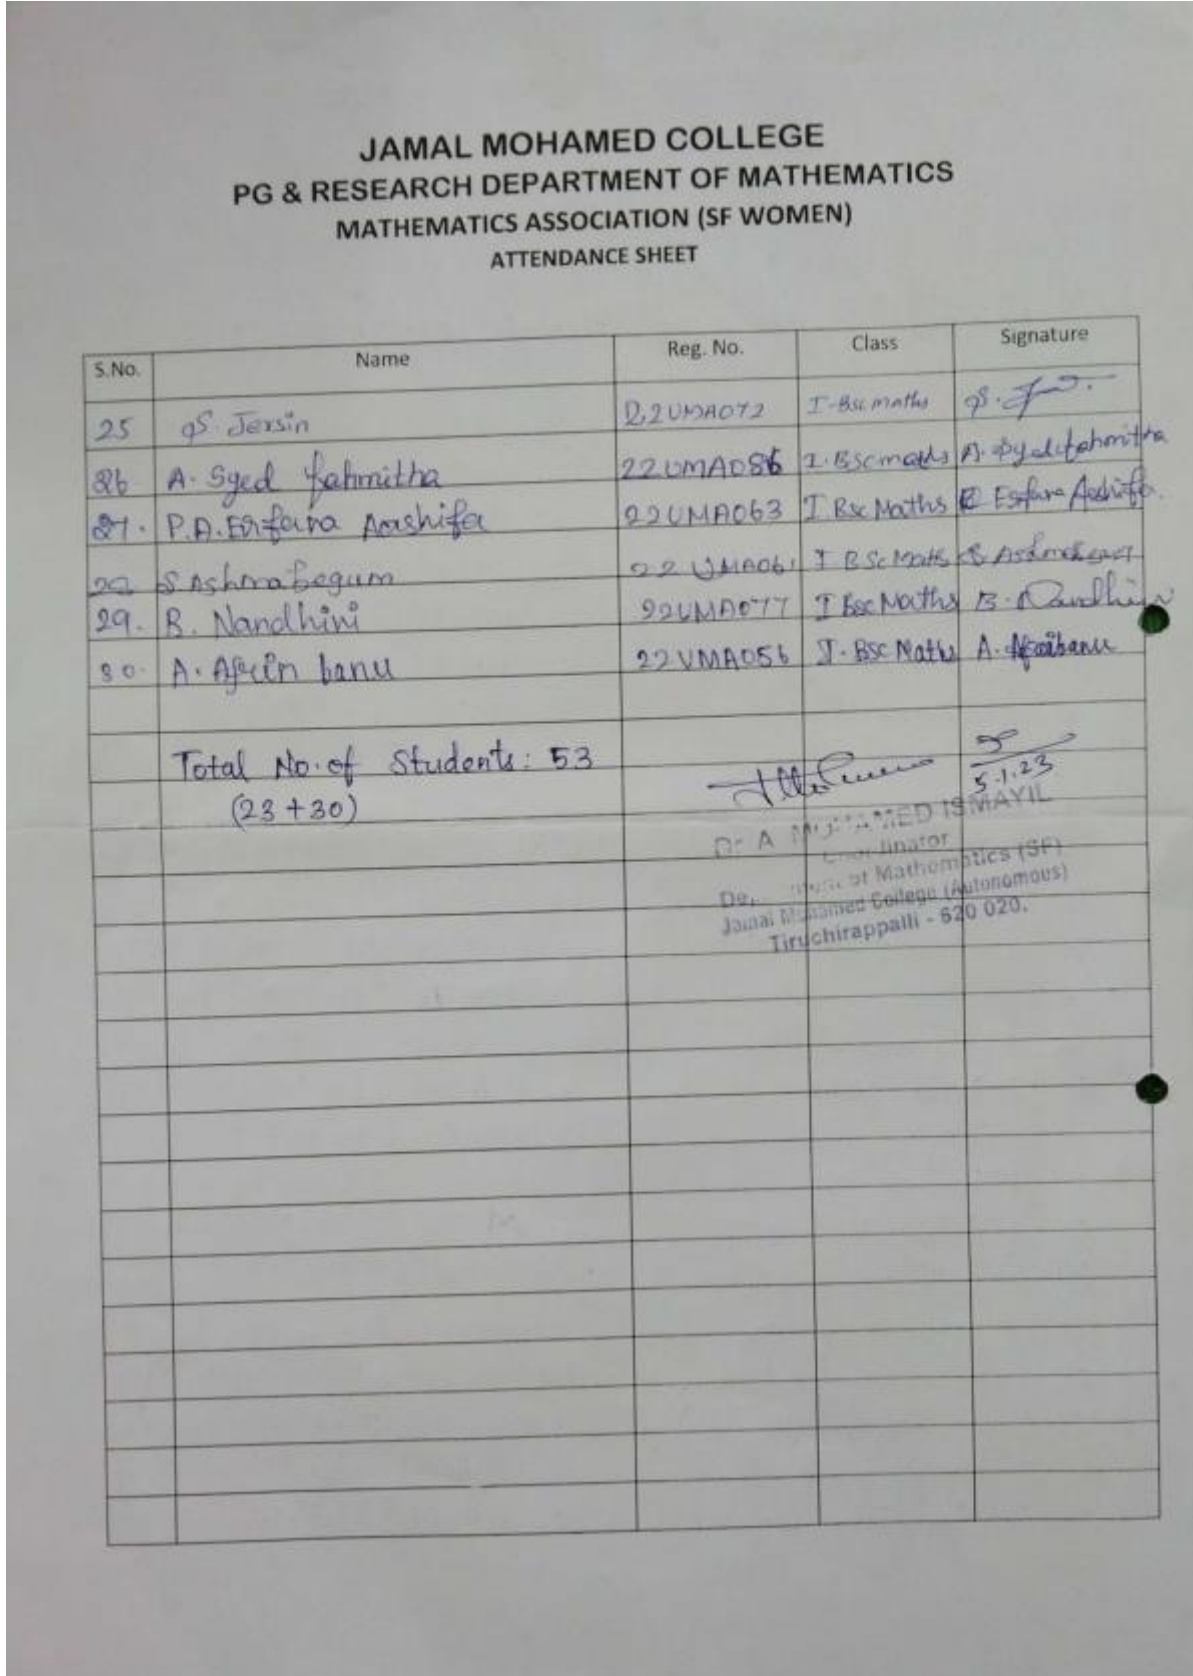 JAMAL MOHAMED COLLEGE
PG & RESEARCH DEPARTMENT OF MATHEMATICS
MATHEMATICS ASSOCIATION (SF WOMEN)
ATTENDANCE SHEET
S.No. Name Reg. No. Class Signature
25 S. Jersin 22UMA072 I-Bsc maths S.
26 A. Syed fahmitha 22UMA086 I. BSc maths A. Syed fahmitha
27. P.A. Erfana Aashifa 22UMA063 I Bsc Maths Erfana Aashifa
S Ashma begum 22 UMA061 I BSc Maths S
29. B. Nandhini 22UMA077 I Bsc Maths B. Nandhini
30. A. Afrin banu 22UMA056 I. BSc Maths A. Afrinbanu
Total No. of Students: 53
(23 + 30)
5.1.23
Dr A MOHAMED ISMAYIL
Coordinator
Department of Mathematics (SF)
Jamal Mohamed College (Autonomous)
Tiruchirappalli - 620 020.